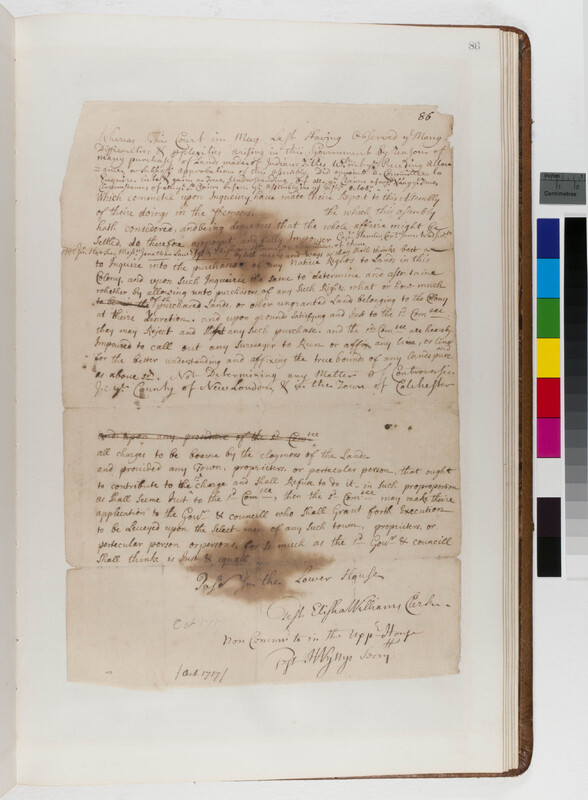 86
86
Whereas This Court in May Last Having Observed ye Many
Difficulties & perplexities arising in this Government by reason of
many purchases of Lands made of Indian Titles without ye Preceding Allow
ance or approbation of this Assembly Did appoint a Committee to
Enquire into
Which committee upon Inquiery have made their Report to this Assembly
of their doings in the premises. the which this Assembly
hath considered, and being desireous that the whole affaire might be
Settled do therefore appoint and fully Impower
to Inquire into the purchases of any Native Rights to Lands in this
Colony, and upon Such Inquierie the same to determine and assertaine
whether by allowing unto purchisers of any Such Right, what or how much
of the purchased Lands, or other ungranted Land belonging to the Colony
at there discretion, and upon grounds Satisfying and Just to the sd Comtee
they may Reject and any Such purchase. and the sd Comtee are hereby
Impowred to call out any Surveyor to Run or affix any line, or lines
for the better understanding and affixing the true bound of any Lands
as above sd. Not Determining any Matter of Controversie
In ye County of New London, & in the Town of Colchester
and upon any of the sd Comtee
all charges to be boarne by the claymers of the Land
and provided any Town, proprieters, or pertecular person, that ought
to contribute to the charge and Shall Refuse to do it in such proportion
as Shall Seeme Just to the sd Comtee, then the sd Comtee may make their
application to the Govr & councill who Shall Grant forth Execution
to be Leveyed upon the Select men of any Such town, proprieters, or
pertecular person or persons, for so much as the sd Govr & councill
Shall thinke is Just & equall
Past in the Lower House
Test Elisha Williams Clerk
Oct 1717
Non Concurrs in the Uppr House
Test H Wyllys Secry
/Oct. 1717/
Inches
Centimetres